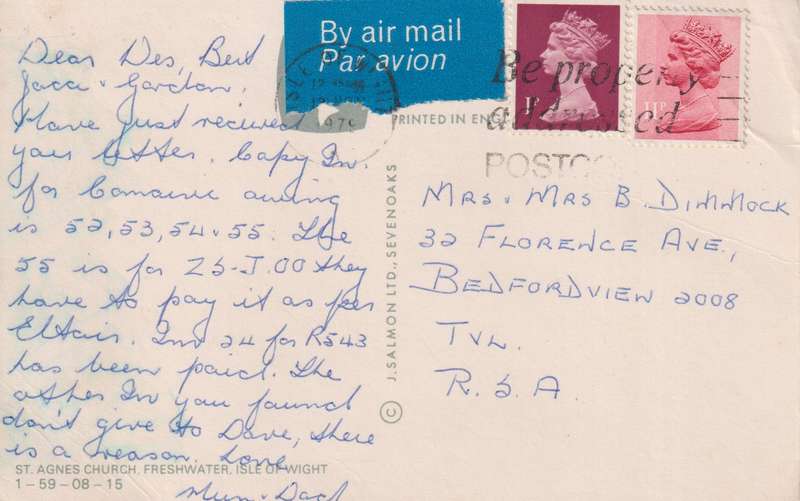 By air mail
Par avion
1P
11P
Be properly
addressed
POSTCO
1979
PRINTED IN ENG
Dear Des, Bert
Jacci & Gordon,
Have just received
your letter. Copy Inv.
for Comaire owing
is 52, 53, 54 & 55. The
55 is for ZS-J.00 they
have to pay it as per
Eltair. Inv 24 for R543
has been paid. The
other Inv you found
don't give to Dave, there
is a reason. Love
Mum & Dad
© J. SALMON LTD., SEVENOAKS
MRS & MRS B. DIMMOCK
32 FLORENCE AVE.,
BEDFORDVIEW 2008
TVL.
R.S.A.
ST. AGNES CHURCH, FRESHWATER, ISLE OF WIGHT
1-59-08-15